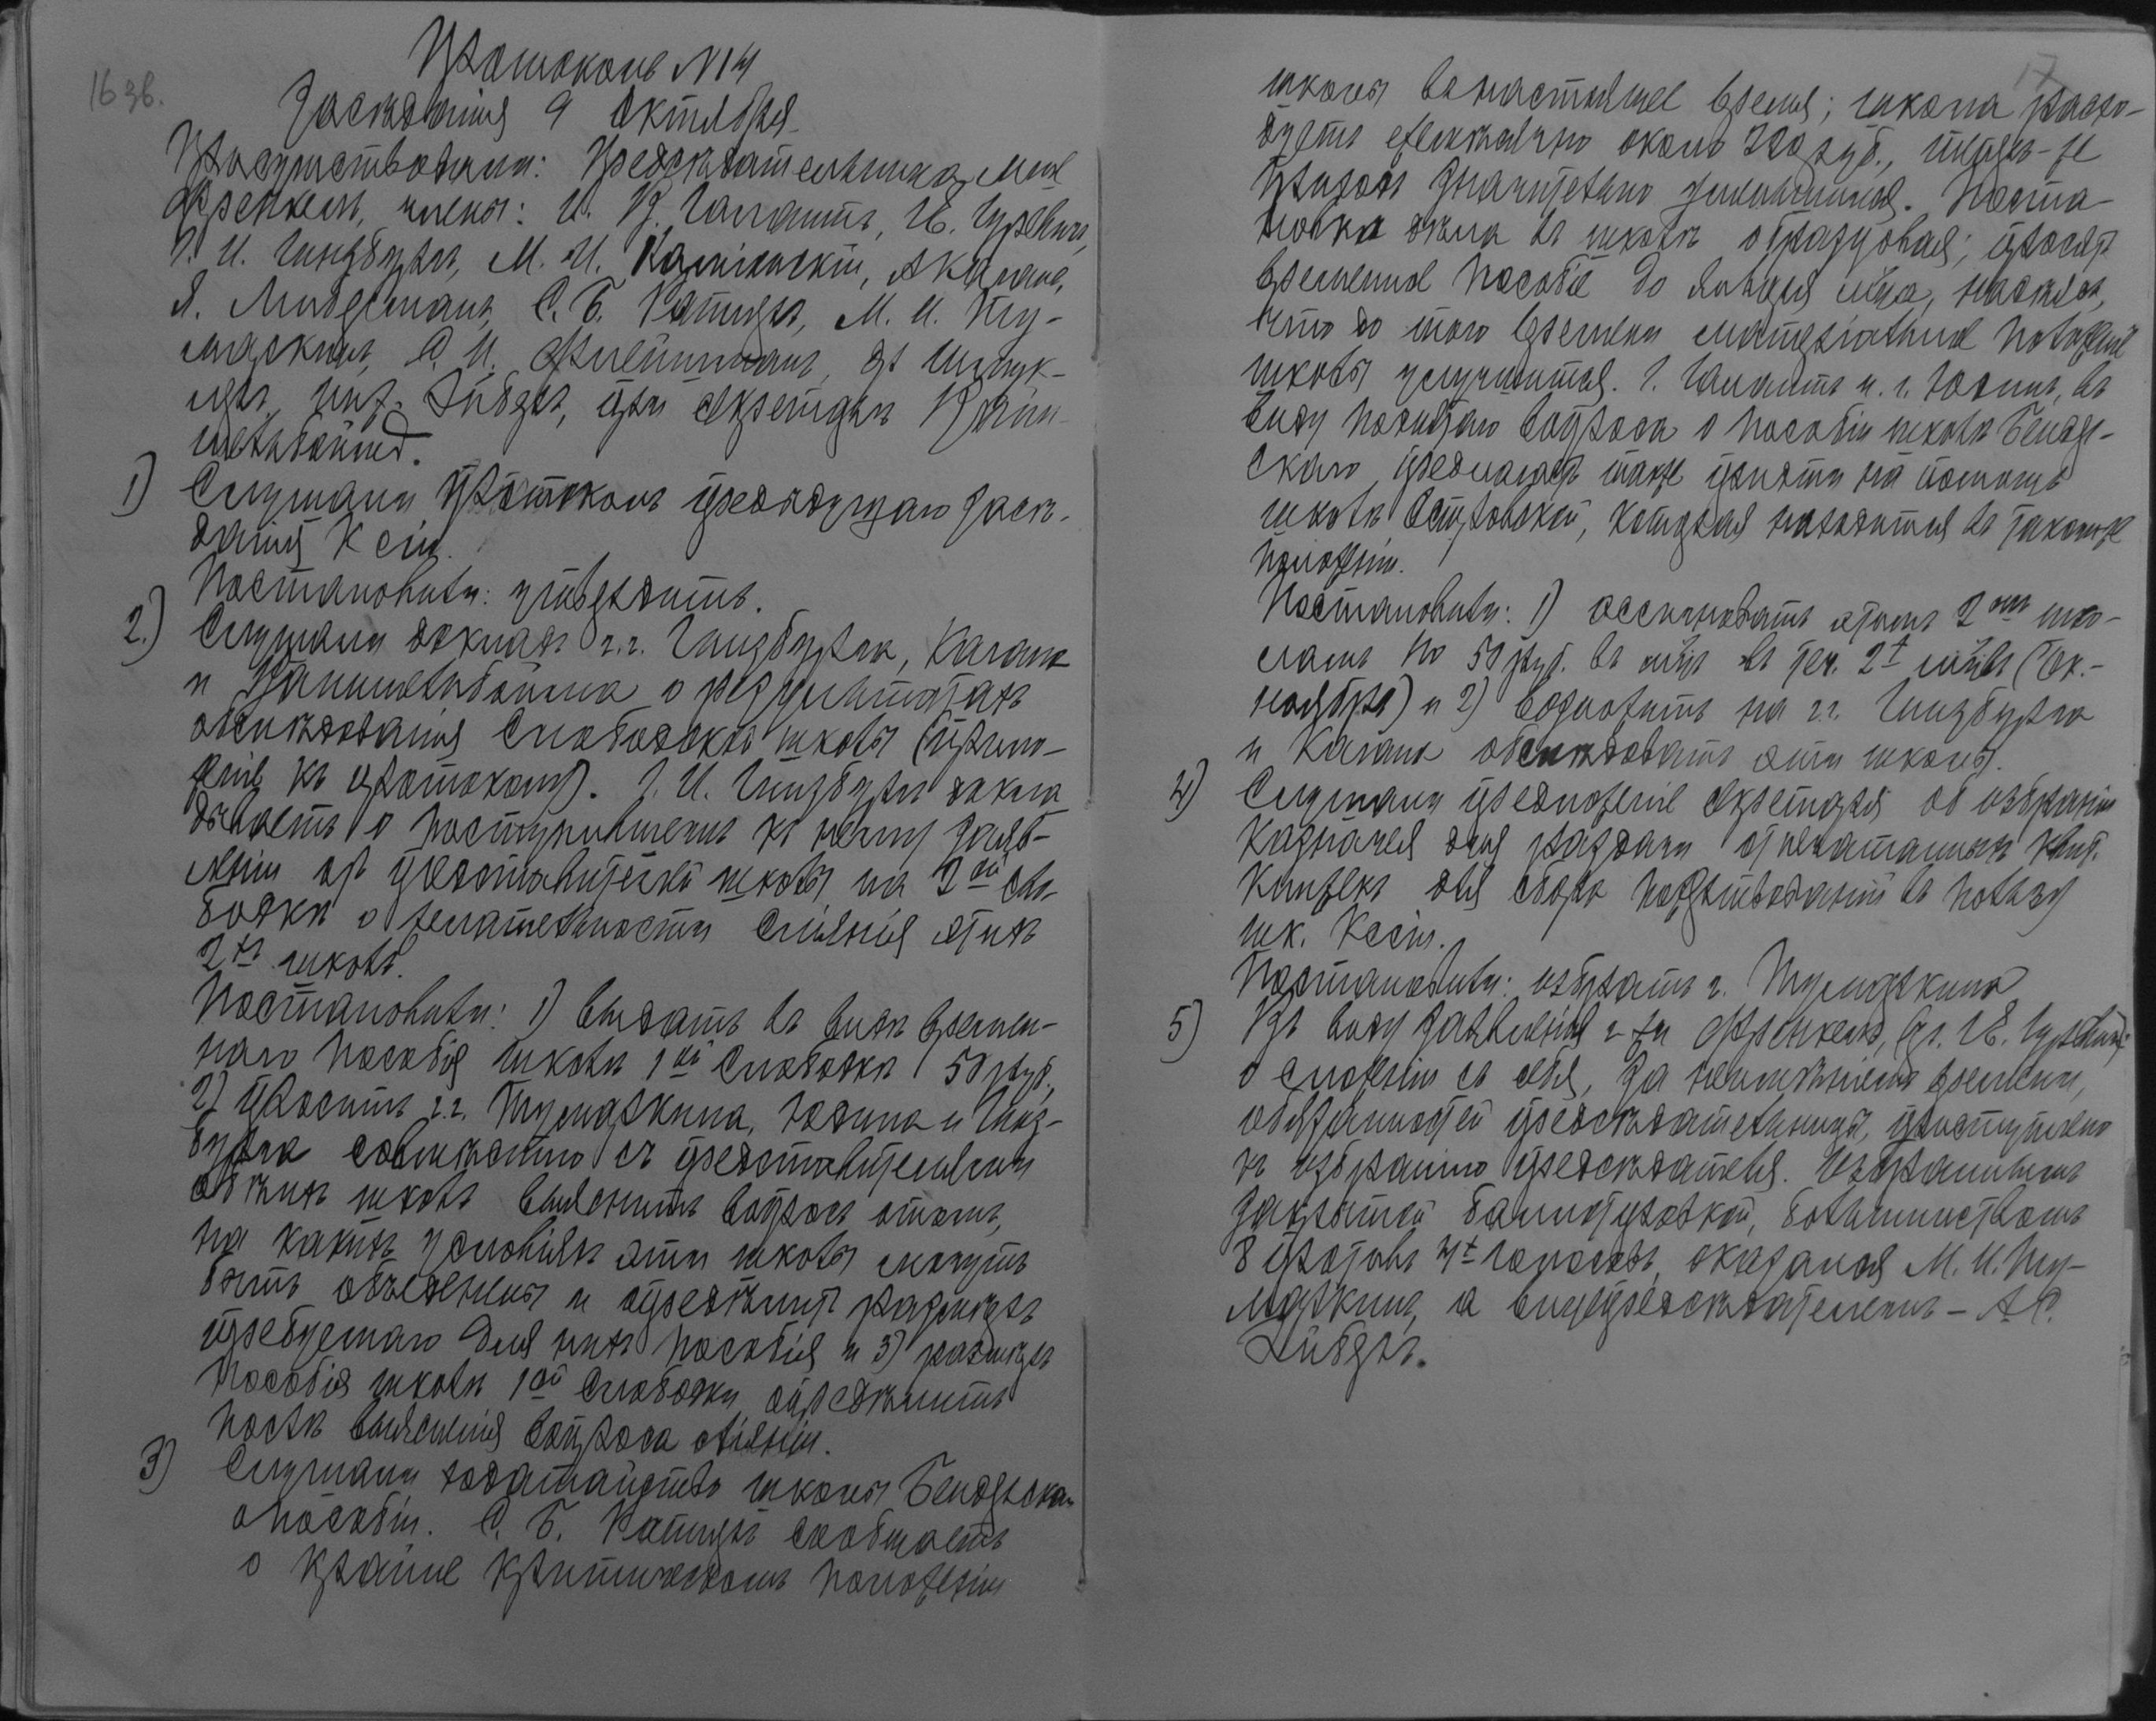 16 зв.
Протоколъ №14
Засѣданія 9 Октября.
Присутствовали: Предсѣдательница М-me
Френкель, члены: И. В. Галантъ, И. Гуревичъ,
Г. И. Гинзбургъ, М. И. А. Каганъ,
Я. Либерманъ, С. Б. Ратнеръ, М. И. Ту-
маркинъ, С. И. Флейшманъ,
инж. Эйберъ, при секретарѣ Вай-
1) Слушали протоколъ предыдущаго засѣ-
данія К-сіи.
Постановили: утвердить.
2.) Слушали докладъ г.г. Гинзбурга, Кагана
и о результатахъ
обслѣдованія Слободской школы (прило-
женіе къ протоколу). Г. И. Гинзбургъ докла-
дываетъ о поступившемъ къ нему заяв-
леніи отъ представителей школы на 2ой Сло-
бодкѣ о желательности сліянія этихъ
2хъ школъ.
Постановили: 1) выдать въ видѣ времен-
наго пособія школѣ 1ой Слободки 50 руб.,
2) Просить г.г. Тумаркина, Юдина и Гинз-
бурга совмѣстно съ представителями
обѣихъ школъ выяснить вопросъ о томъ,
на какихъ условіяхъ эти школы могутъ
быть объединены и опредѣлить размѣръ
требуемаго для нихъ пособія и 3) размѣръ
пособія школѣ 1ой Слободки опредѣлить
послѣ выясненія вопроса сліянія.
3) Слушали ходатайство школы Бендерскаго
о пособіи. С. Б. Ратнеръ сообщаетъ
о крайне критическомъ положеніи
17
школы въ настоящее время; школа расхо-
дуетъ ежемѣсячно около 320 руб., между-же
приходъ значительно уменьшился. Поста-
новка дѣла въ школѣ образцовая; просятъ
временное пособіе до января мѣс., надѣясь,
что до того времени матеріальное положеніе
школы улучшится. Г. Галантъ и г. Юдинъ, въ
виду поднятаго вопроса о пособіи школѣ Бендер-
скаго, предлагаютъ также прійти на помощь
школѣ Островской, которая находится въ такомъ-же
положеніи.
Постановили: 1) ассигновать этимъ 2мъ шко-
ламъ по 50 руб. въ мѣс. въ теч. 2хъ мѣс. (Ок.-
ноябрь) и 2) возложить на г.г. Гинзбурга
и Кагана обслѣдовать эти школы.
4) Слушали предложеніе секретаря объ избраніи
казначея для раздачи отпечатанныхъ квит.
книжекъ для сбора пожертвованій въ пользу
шк. К-ссіи.
Постановили: избрать г. Тумаркина
5) Въ виду заявленія г-жи Френкель, И. Гуревичъ
о сложеніи съ себя, за неимѣніемъ времени,
обязанностей предсѣдательницы, приступлено
къ избранію предсѣдателя. Избраннымъ
закрытой баллотировкой, большинствомъ
8 противъ 4хъ голосовъ, оказался М. И. Ту-
маркинъ, а вицепредсѣдателемъ – А. С.
Эйберъ.